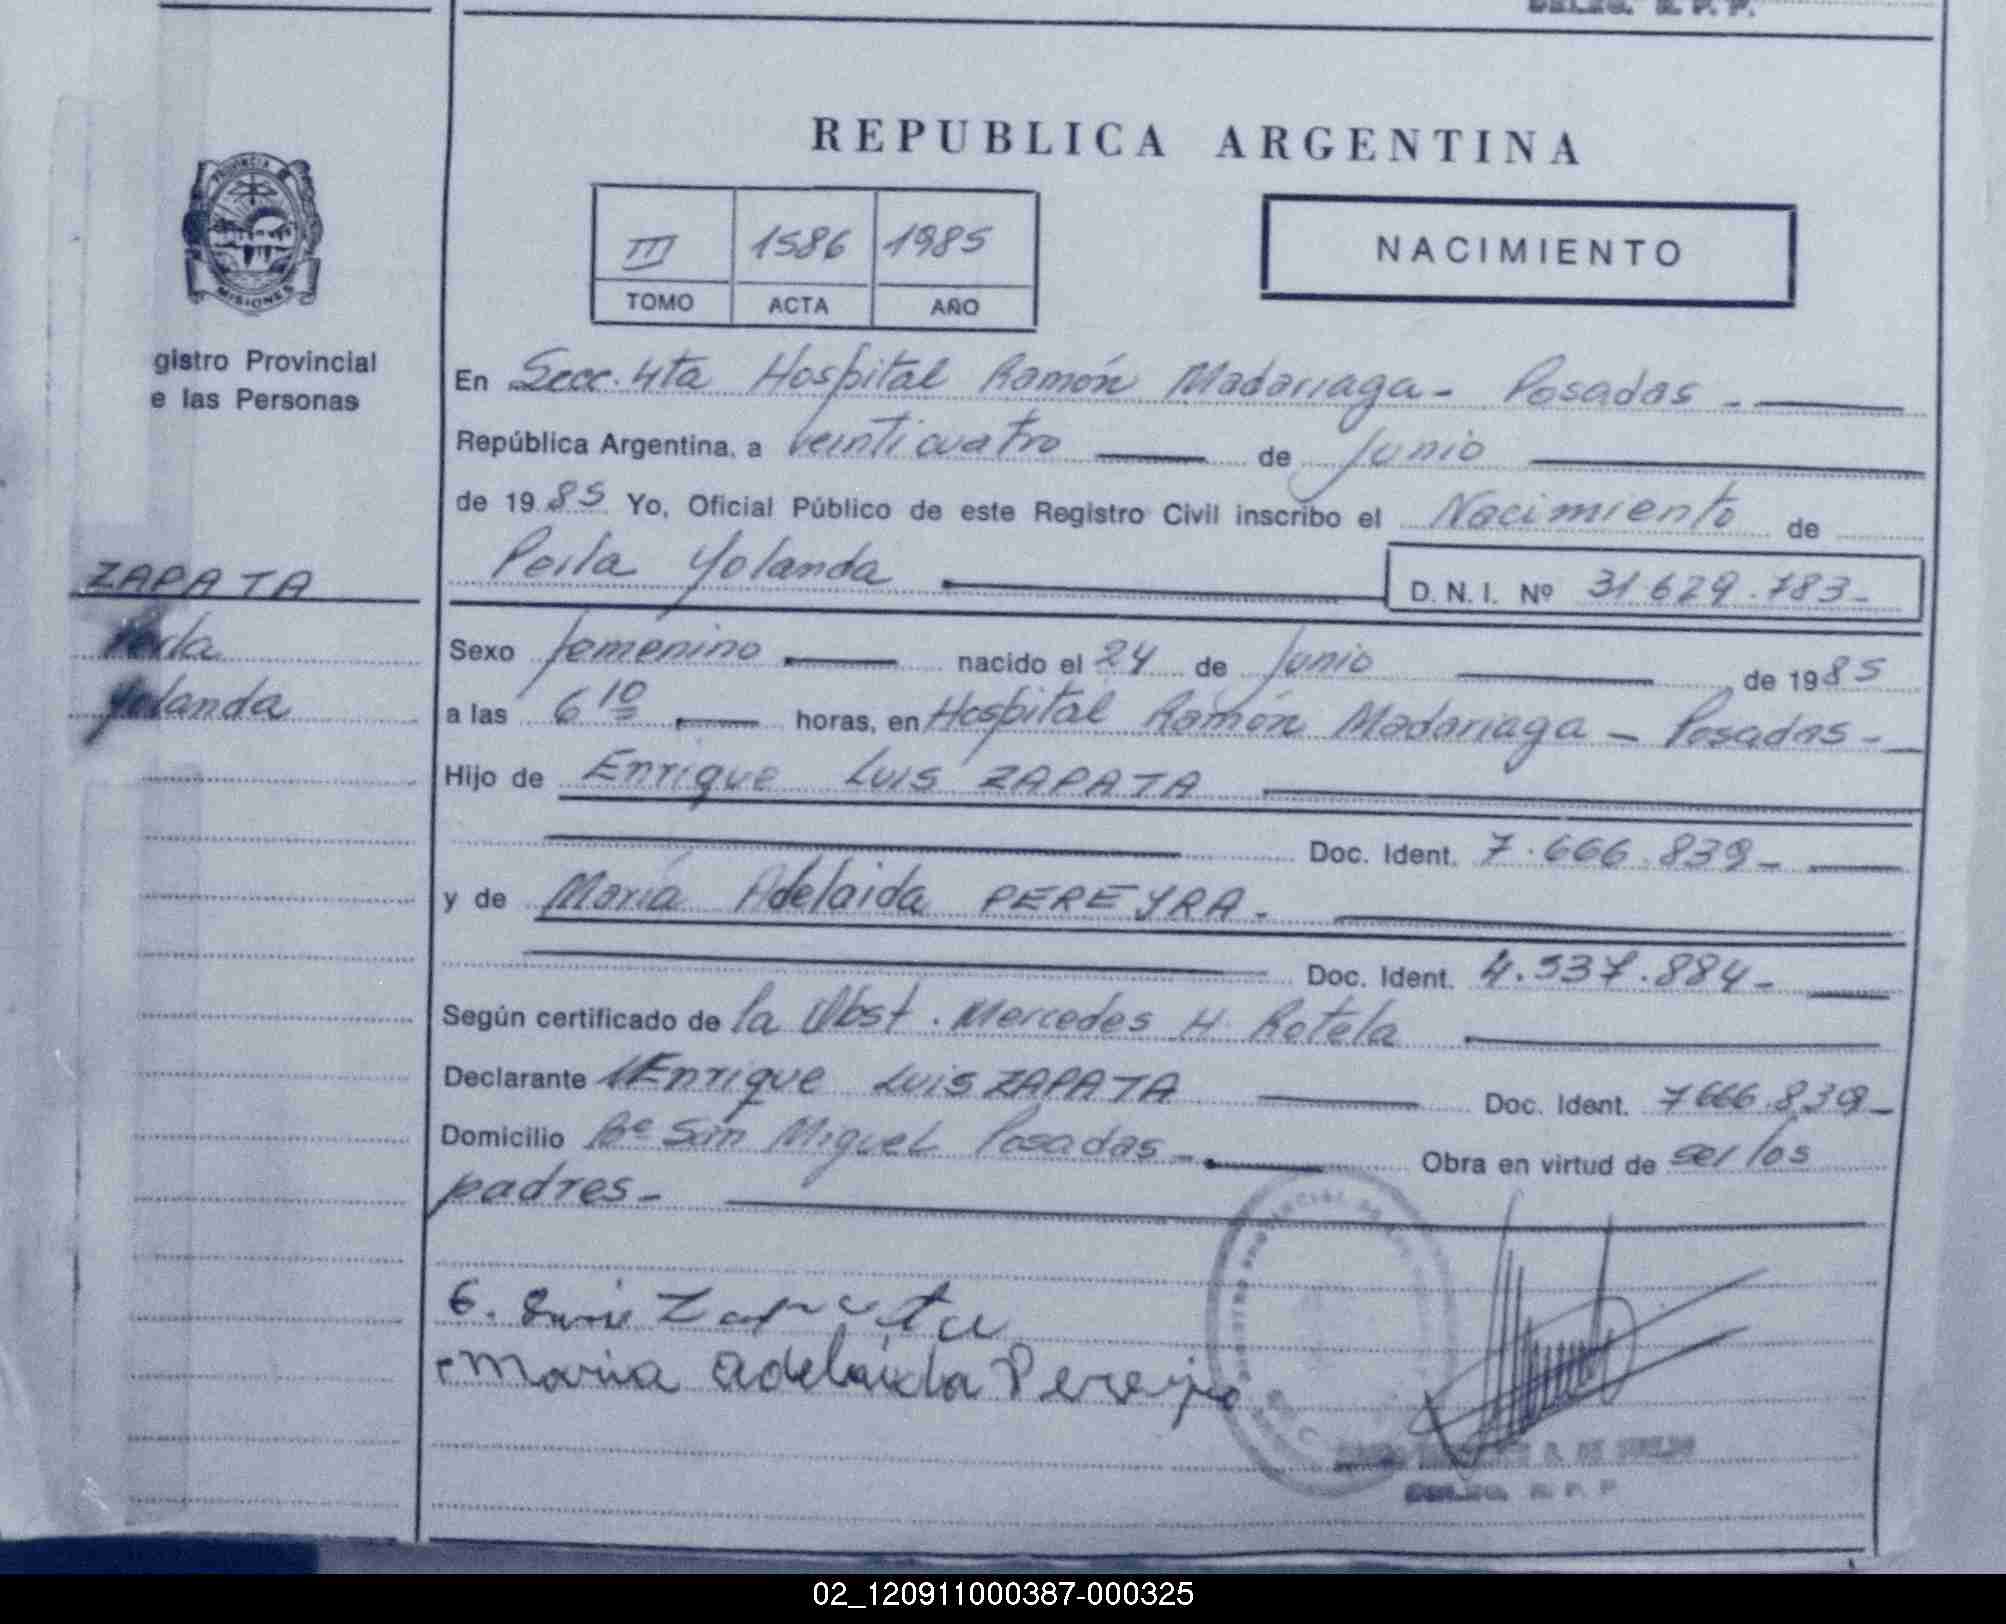 REPUBLICA ARGENTINA
III 1586 1985
TOMO ACTA AÑO
NACIMIENTO
PROVINCIA DE
MISIONES
gistro Provincial
e las Personas
En Secc. 4ta Hospital Ramón Madariaga - Posadas -
República Argentina, a veinticuatro de Junio
de 1985 Yo, Oficial Público de este Registro Civil inscribo el Nacimiento de
Perla Yolanda D. N. I. Nº 31.629.783-
ZAPATA
Perla
Yolanda
Sexo femenino nacido el 24 de Junio de 1985
a las 6 10 horas, en Hospital Ramón Madariaga - Posadas -
Hijo de Enrique Luis ZAPATA
Doc. Ident. 7.666.839-
y de María Adelaida PEREYRA.
Doc. Ident. 4.537.884-
Según certificado de la Obst. Mercedes H. Rotela
Declarante Enrique Luis ZAPATA Doc. Ident. 7666.839-
Domicilio Bº San Miguel Posadas - Obra en virtud de ser los
padres -
E. Luis Zapata
Maria Adelaida Pereyra
DELEG. R. P. P.
02_120911000387-000325